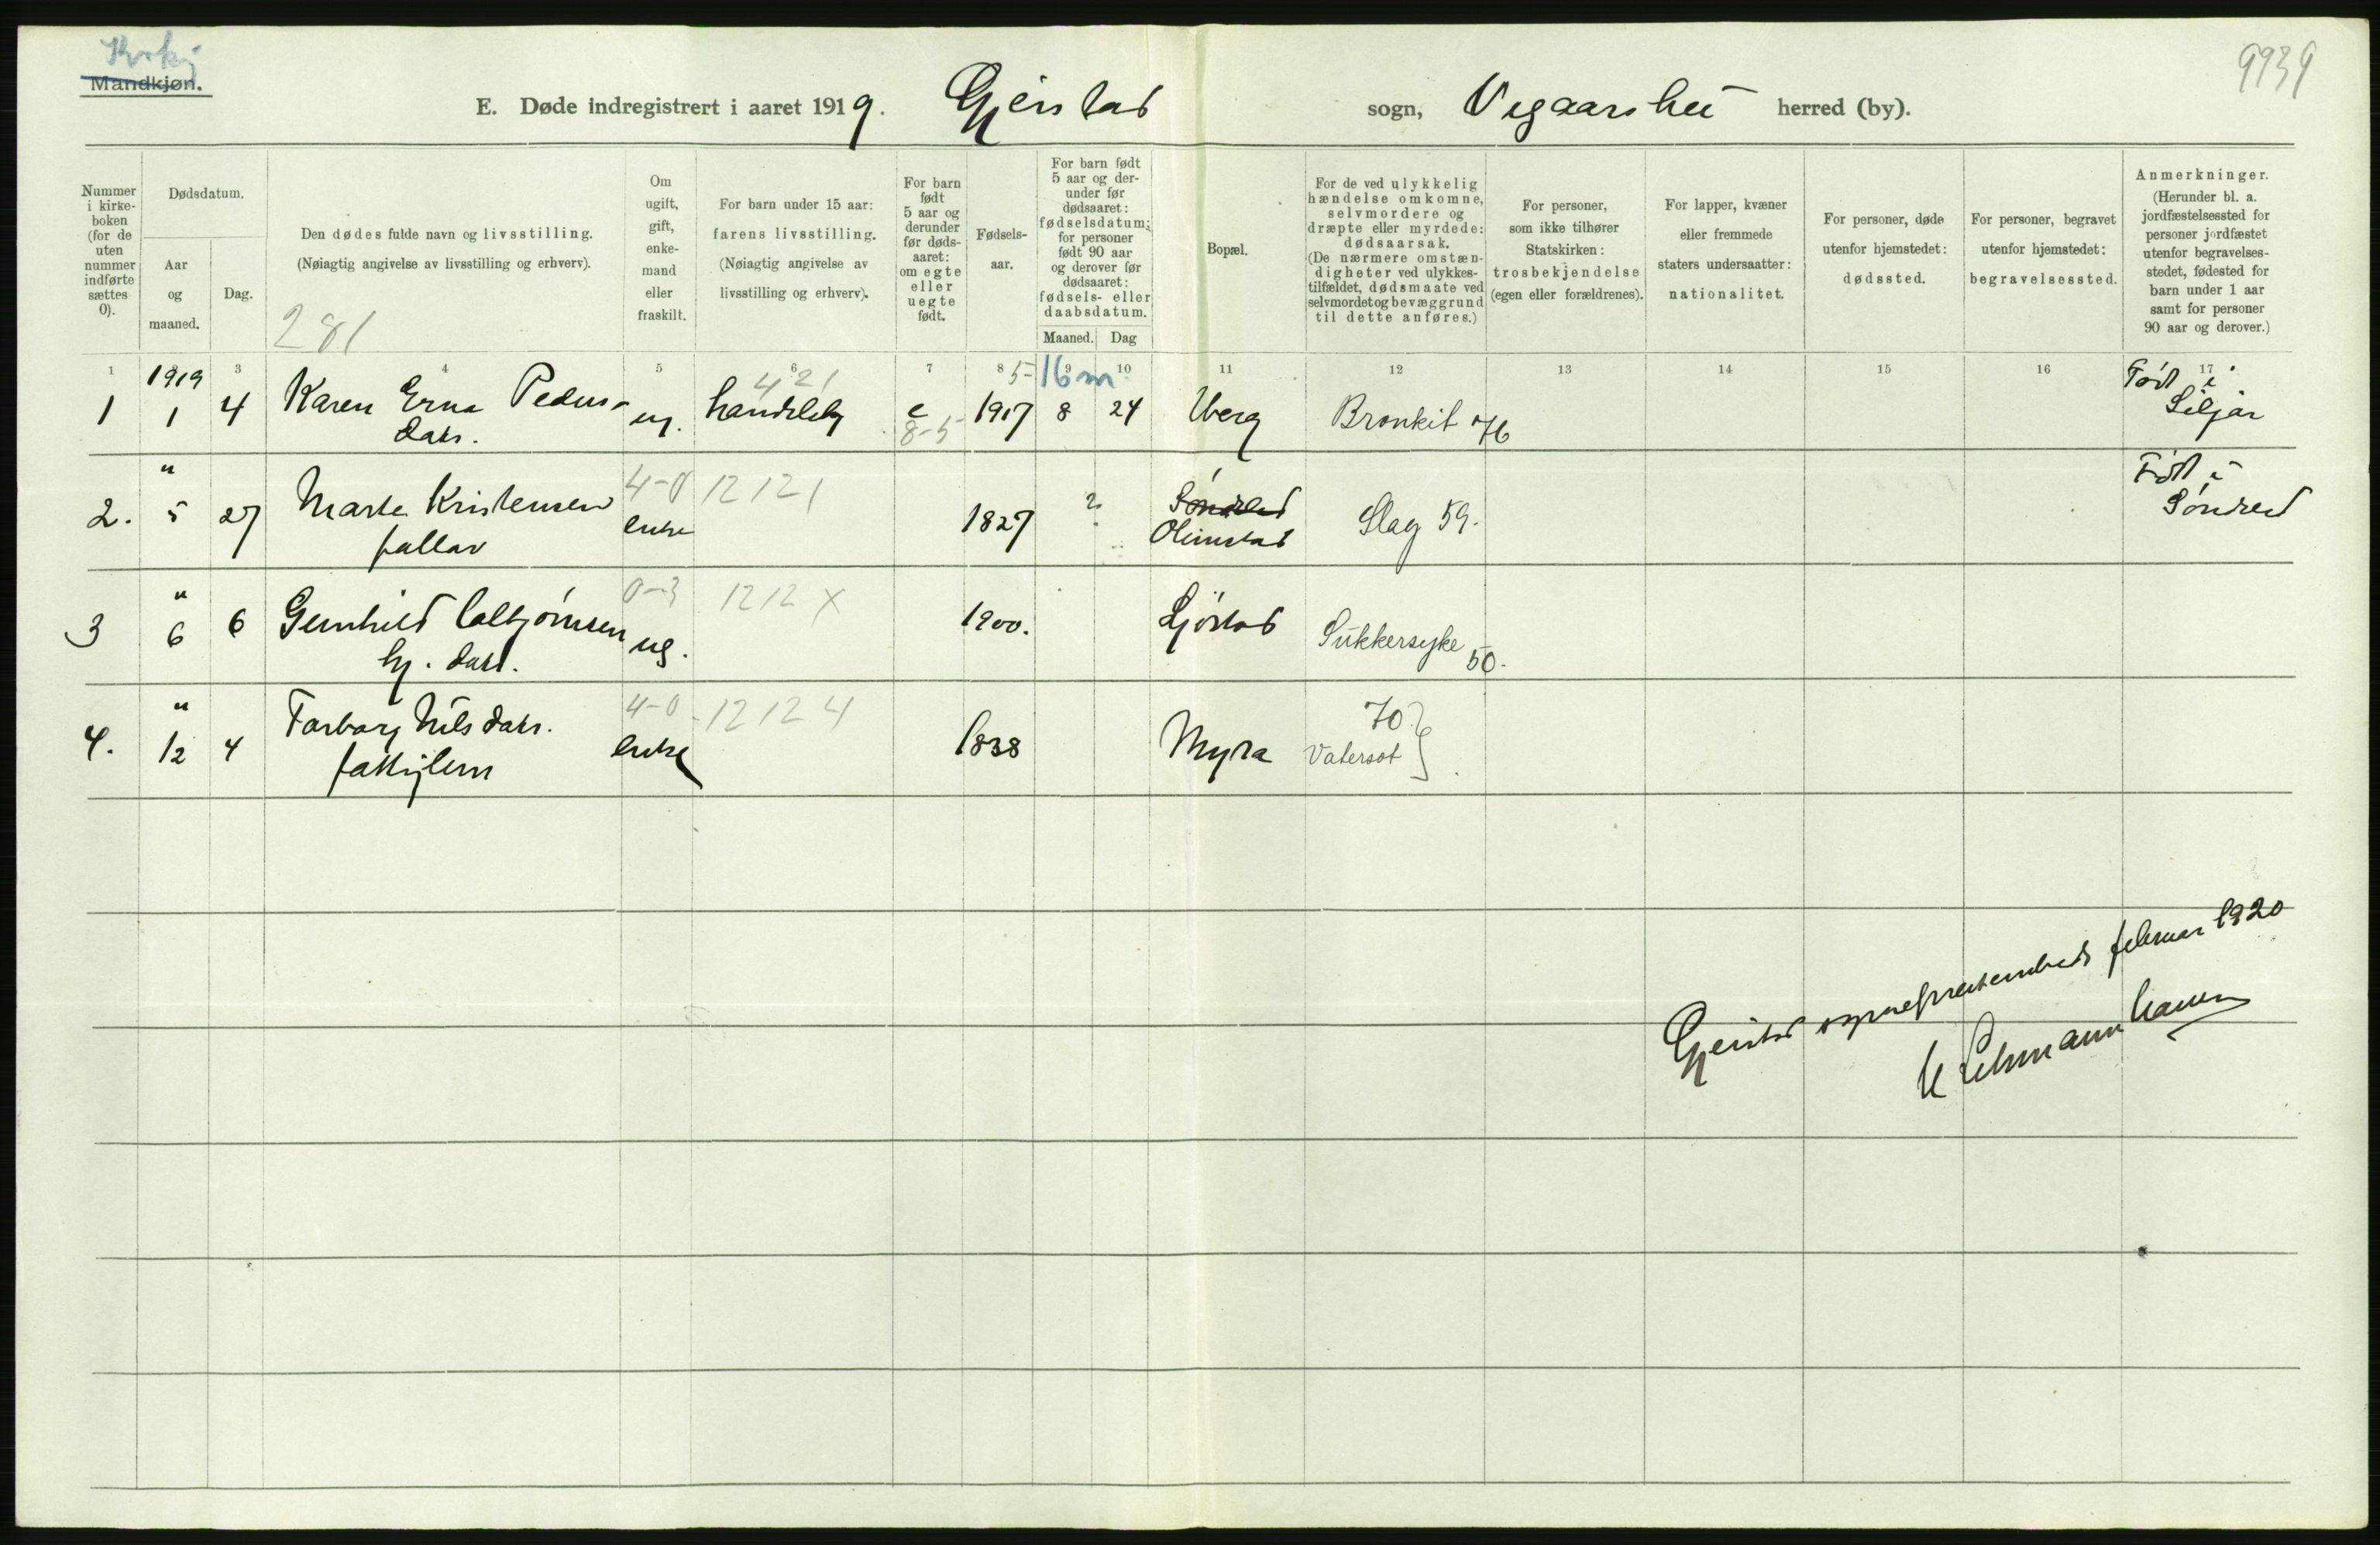 Kvkj
Mandkjøn.
9939
E. Døde indregistrert i aaret 1919. Gjerstad sogn, Vegaarshei herred (by).
Nummer i kirke-boken (for de uten nummer indførte sættes 0).
Dødsdatum.
Aar og maaned.
Dag.
Den dødes fulde navn og livsstilling.
(Nøiagtig angivelse av livsstilling og erhverv).
281
Om ugift, gift, enke-mand eller fraskilt.
For barn under 15 aar:
farens livsstilling.
(Nøiagtig angivelse av livsstilling og erhverv).
For barn født 5 aar og derunder før døds-aaret: om egte eller uegte født.
Fødsels-aar.
For barn født 5 aar og der-under før dødsaaret: fødselsdatum; for personer født 90 aar og derover før dødsaaret: fødsels- eller daabsdatum.
Maaned. Dag
Bopæl.
For de ved ulykkelig hændelse omkomne, selvmordere og dræpte eller myrdede: dødsaarsak.
(De nærmere omstæn-digheter ved ulykkes-tilfældet, dødsmaate ved selvmordet og bevæggrund til dette anføres.)
For personer, som ikke tilhører Statskirken: trosbekjendelse (egen eller forældrenes).
For lapper, kvæner eller fremmede staters undersaatter: nationalitet.
For personer, døde utenfor hjemstedet: dødssted.
For personer, begravet utenfor hjemstedet: begravelsessted.
Anmerkninger.
(Herunder bl. a. jordfæstelsessted for personer jordfæstet utenfor begravelses-stedet, fødested for barn under 1 aar samt for personer 90 aar og derover.)
1 3 4 5 6 7 8 9 10 11 12 13 14 15 16 17
1919 421 5- 16 m Født i
1 1 4 Karen Erna Peders- ug. handelsb e 1917 8 24 Uberg Bronkit 76 Siljar
datr. 8-5
" 4-0 12 12 1 Søndeled Født i
2. 5 27 Marte Kristensen enke 1827 ? Olimstad Slag 59. Søndeled
fattar
" 0-3 12 12 X
3 6 6 Gunhild ug. 1900. Ljøstad Sukkersyke 50.
gj. datr.
" 4-0 12 12 4 70?
4. 12 4 Torborg Nilsdatr. enke 1838 Myra Vatersot
fattiglem
Gjerstad sogneprestembede februar 1920
Lehmann Hansen